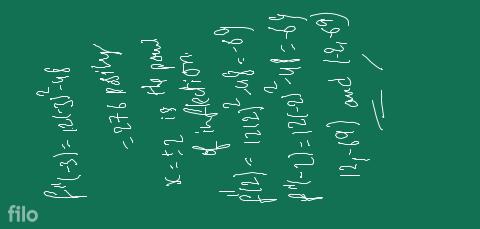 f''(-3) = 12(-3)² - 48
= 276 positive
x = ±2 is the point
of inflection.
f''(2) = 12(2)² - 48 = -69
f''(-2) = 12(-2)² - 48 = -69
(2, -69) and (-2, -69)
filo